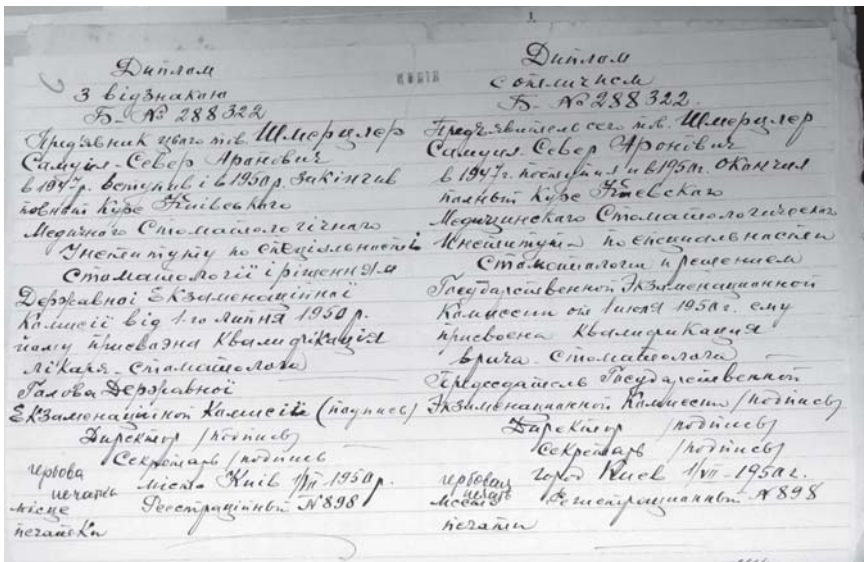 Диплом
З відзнакою
Б- № 288322
Пред'явник цього тов. Шмерцлер
Самуїл-Север Аранович
в 1947р. вступив і в 1950р. закінчив
повний Курс Київського
Медичного Стоматологічнаго
Інституту по спеціальності
Стоматологіï і рішенням
Державної Екзаменаційної
Комісії від 1-го липня 1950 р.
йому присвоэна Квалифікація
лікаря-стоматолога
Голова Державної
Екзаменаційной Комисіï (подпись)
Директор /подпись/
Секретарь /подпись
гербова
печатка
місто Київ 1/VII-1950р.
місце
Реєстраційный N898
печатки
Диплом
с отличием
Б- № 288322.
Предъявитель сего т.в. Шмерцлер
Самуил-Север Аронович
в 1947г. поступил и в 1950г. окончил
полный Курс Киевскаго
Медицинскаго Стоматологическаго
Института по специальности
Стоматология и решением
Государственной Экзаменационной
Комиссии от 1 июля 1950г. ему
присвоена Квалификация
врача-стоматолога
Председатель Государственной
Экзаменационной Комиссии /подпись/
Директор /подпись/
Секретарь /подпись/
гербовая
печать
город Киев 1/VII-1950г.
место
Регистрационный N898
печати